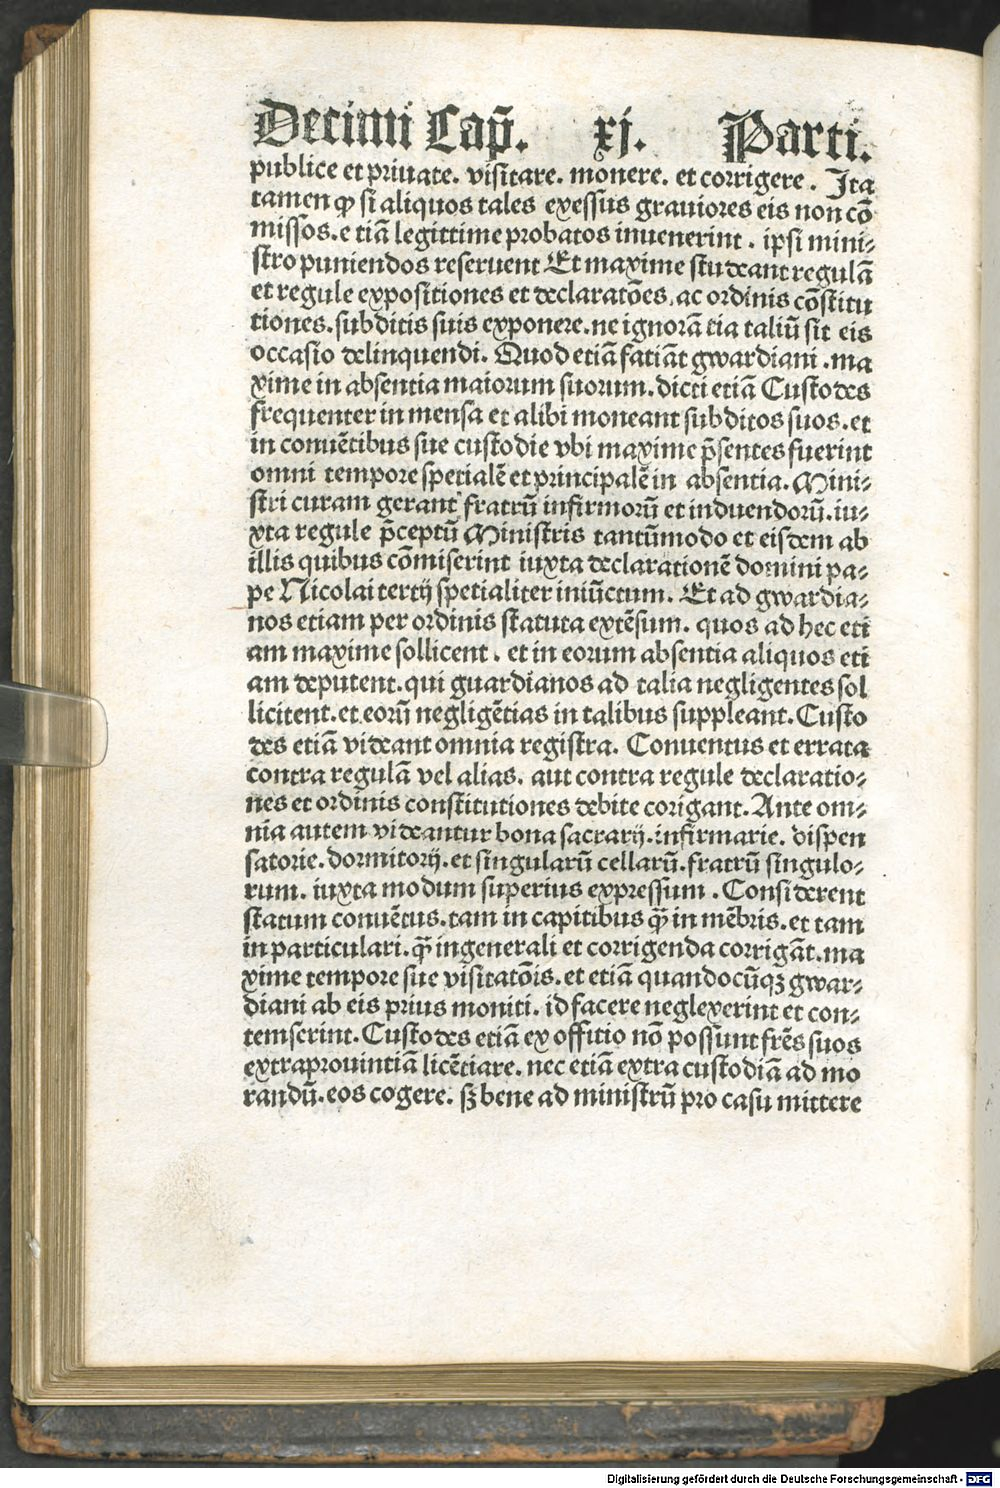 Decimi Cap̄. xj. Parti.
publice et priuate. visitare. monere. et corrigere. Ita
tamen ꝙ si aliquos tales exessus grauiores eis non cō
missos. e tiā legittime probatos inuenerint. ipsi mini⸗
stro puniendos reseruent Et maxime studeant regulā
et regule expositiones et declaratōes, ac ordinis cōstitu
tiones. subditis suis exponere. ne ignorā tia taliū sit eis
occasio delinquendi. Quod etiā fatiāt gwardiani. ma
xime in absentia maiorum suorum. dicti etiā Custodes
frequenter in mensa et alibi moneant subditos suos. et
in conuētibus sue custodie vbi maxime p̄sentes fuerint
omni tempore spetialē et principalē in absentia. Mini⸗
stri curam gerant fratrū infirmorū et induendorū. iu⸗
xta regule p̄ceptū Ministris tantūmodo et eisdem ab
illis quibus cōmiserint iuxta declarationē domini pa⸗
pe Nicolai tertij spetialiter iniūctum. Et ad gwardia⸗
nos etiam per ordinis statuta extēsum. quos ad hec eti
am maxime sollicent. et in eorum absentia aliquos eti
am deputent. qui guardianos ad talia negligentes sol
licitent. et eorū negligētias in talibus suppleant. Custo
des etiā videant omnia registra. Conuentus et errata
contra regulā vel alias. aut contra regule declaratio⸗
nes et ordinis constitutiones debite corigant. Ante om⸗
nia autem videantur bona sacrarij. infirmarie. dispen
satorie. dormitorij. et singularū cellarū. fratrū singulo⸗
rum. iuxta modum superius expressum. Considerent
statum conuētus. tam in capitibus q̄ in mēbris. et tam
in particulari. q̄ ingenerali et corrigenda corrigāt. ma
xime tempore sue visitatōis. et etiā quandocūqꝫ gwar⸗
diani ab eis prius moniti. id facere neglexerint et con⸗
temserint. Custodes etiā ex offitio nō possunt fr̄es suos
extraprouintiā licētiare. nec etiā extra custodiā ad mo
randū. eos cogere. sꝫ bene ad ministrū pro casu mittere
Digitalisierung gefördert durch die Deutsche Forschungsgemeinschaft - DFG